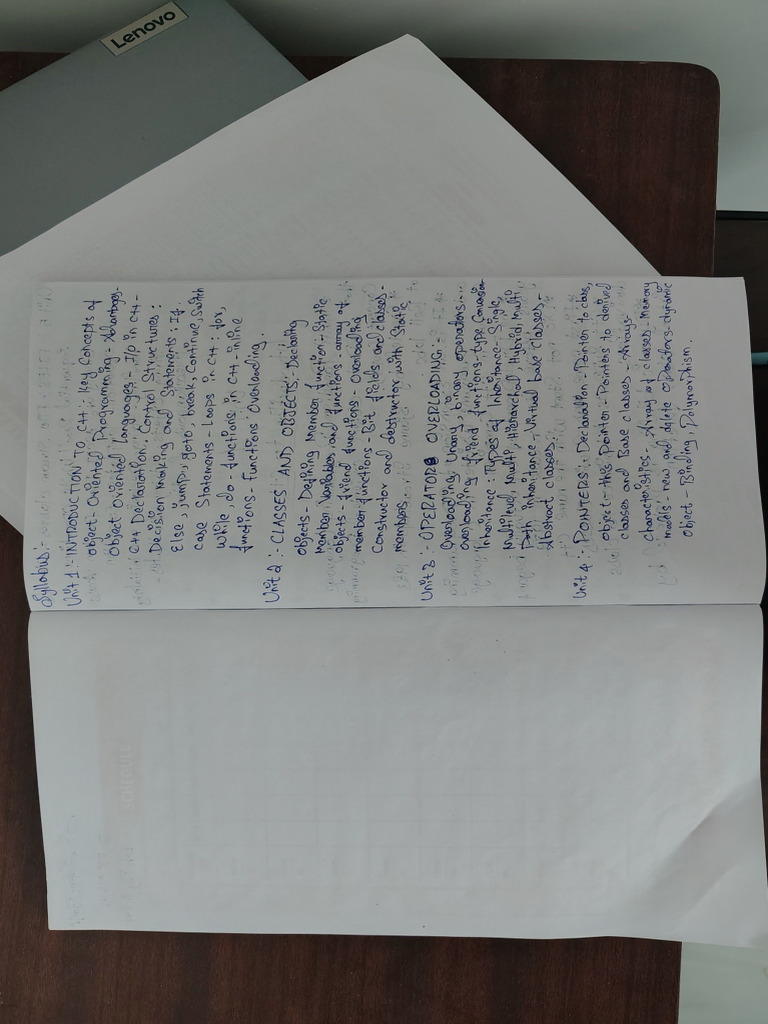 Lenovo
Syllabus:-
Unit 1:- INTRODUCTION TO C++: Key Concepts of
Object-Oriented Programming - Advantages -
Object Oriented Languages - I/O in C++ -
C++ Declaration. Control Structures:
Decision making and Statements: If..
Else, jump, goto, break, Continue, Switch
case Statements - Loops in C++: for,
while, do - functions in C++ inline
functions - Functions Overloading.
Unit 2:- CLASSES AND OBJECTS: Declaring
Objects - Defining Member Function - Static
Member Variables and functions - array of
objects - friend functions - Overloading
member functions - Bit fields and classes -
Constructor and destructor with Static
members
Unit 3:- OPERATOR OVERLOADING:-
Overloading Unary, binary operators -
Overloading friend functions - type Conversion
Inheritance: Types of Inheritance - Single,
Multilevel, Multiple, Hierarchal, Hybrid, Multi
Path inheritance - Virtual base classes -
Abstract classes.
Unit 4:- POINTERS:- Declaration - Pointer to class,
object - this Pointer - Pointers to derived
classes and Base classes - Arrays -
characteristics - Array of classes - Memory
models - new and delete operators - dynamic
object - Binding, Polymorphism.